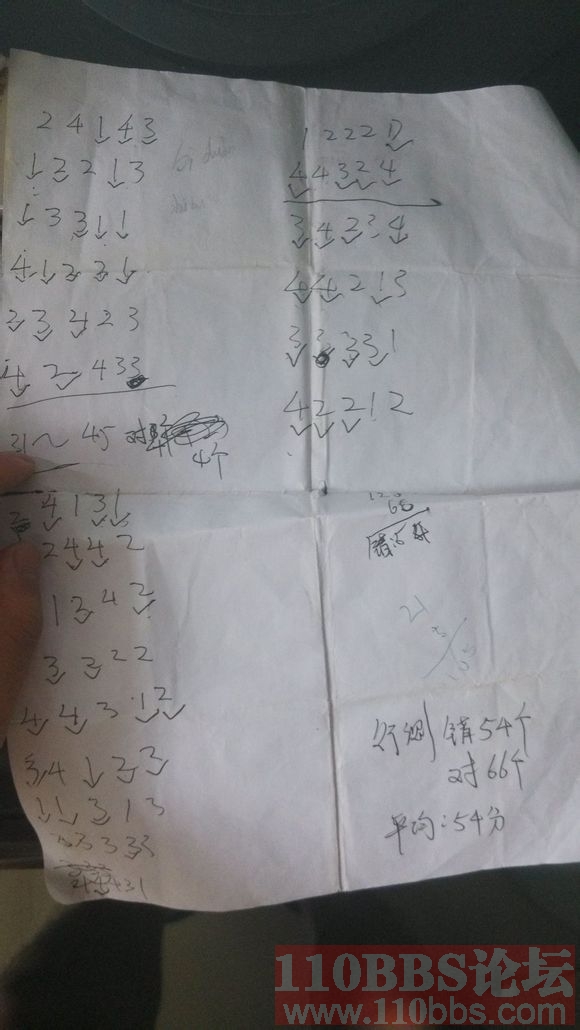 2 4 1 4 3
1 3 2 1 3
1 3 3 1 1
4 1 2 3 1
2 3 4 2 3
4 2 4 3 3
31～45 对
4个
4 1 3 1
2 4 4 2
1 3 4 2
3 3 2 2
4 4 3 1 2
3 4 1 2 3
1 1 3 1 3
3 3 3 3
1 2 2 2
4 4 3 2 4
3 4 3 3 4
4 4 2 1 3
3 3 3 1
4 2 2 1 2
68
21
错54个
对66个
平均:54分
110BBS论坛
www.110bbs.com